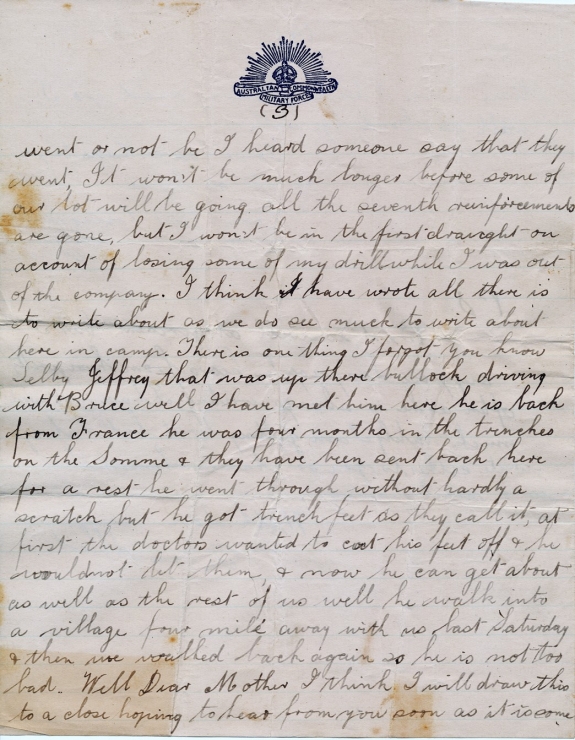 AUSTRALIAN COMMONWEALTH
MILITARY FORCES
(3)
went or not be I heard someone say that they
went, It won't be much longer before some of
our lot will be going all the seventh reinforcements
are gone, but I won't be in the first draught on
account of losing some of my drill while I was out
of the company. I think I have wrote all there is
to write about as we do see much to write about
here in camp. There is one thing I forgot you know
Selby Jeffrey that was up there bullock driving
with Bruce well I have met him here he is back
from France he was four months in the trenches
on the Somme & they have been sent back here
for a rest he went through without hardly a
scratch but he got trench feet as they call it, at
first the doctors wanted to cut his feet off & he
would not let them, & now he can get about
as well as the rest of us well he walk into
a village four mile away with us last Saturday
& then we walked back again so he is not too
bad. Well Dear Mother I think I will draw this
to a close hoping to hear from you soon as it is some